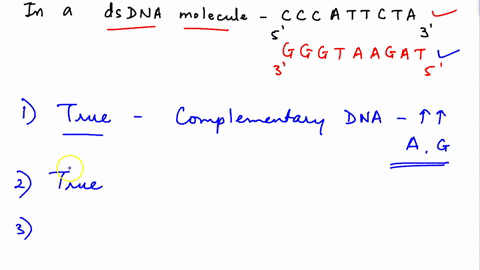 In a dsDNA molecule - CCCATTCTA
5' 3'
GGGTAAGAT
3' 5'
1) True - Complementary DNA - ↑↑
A, G
2) True
3)